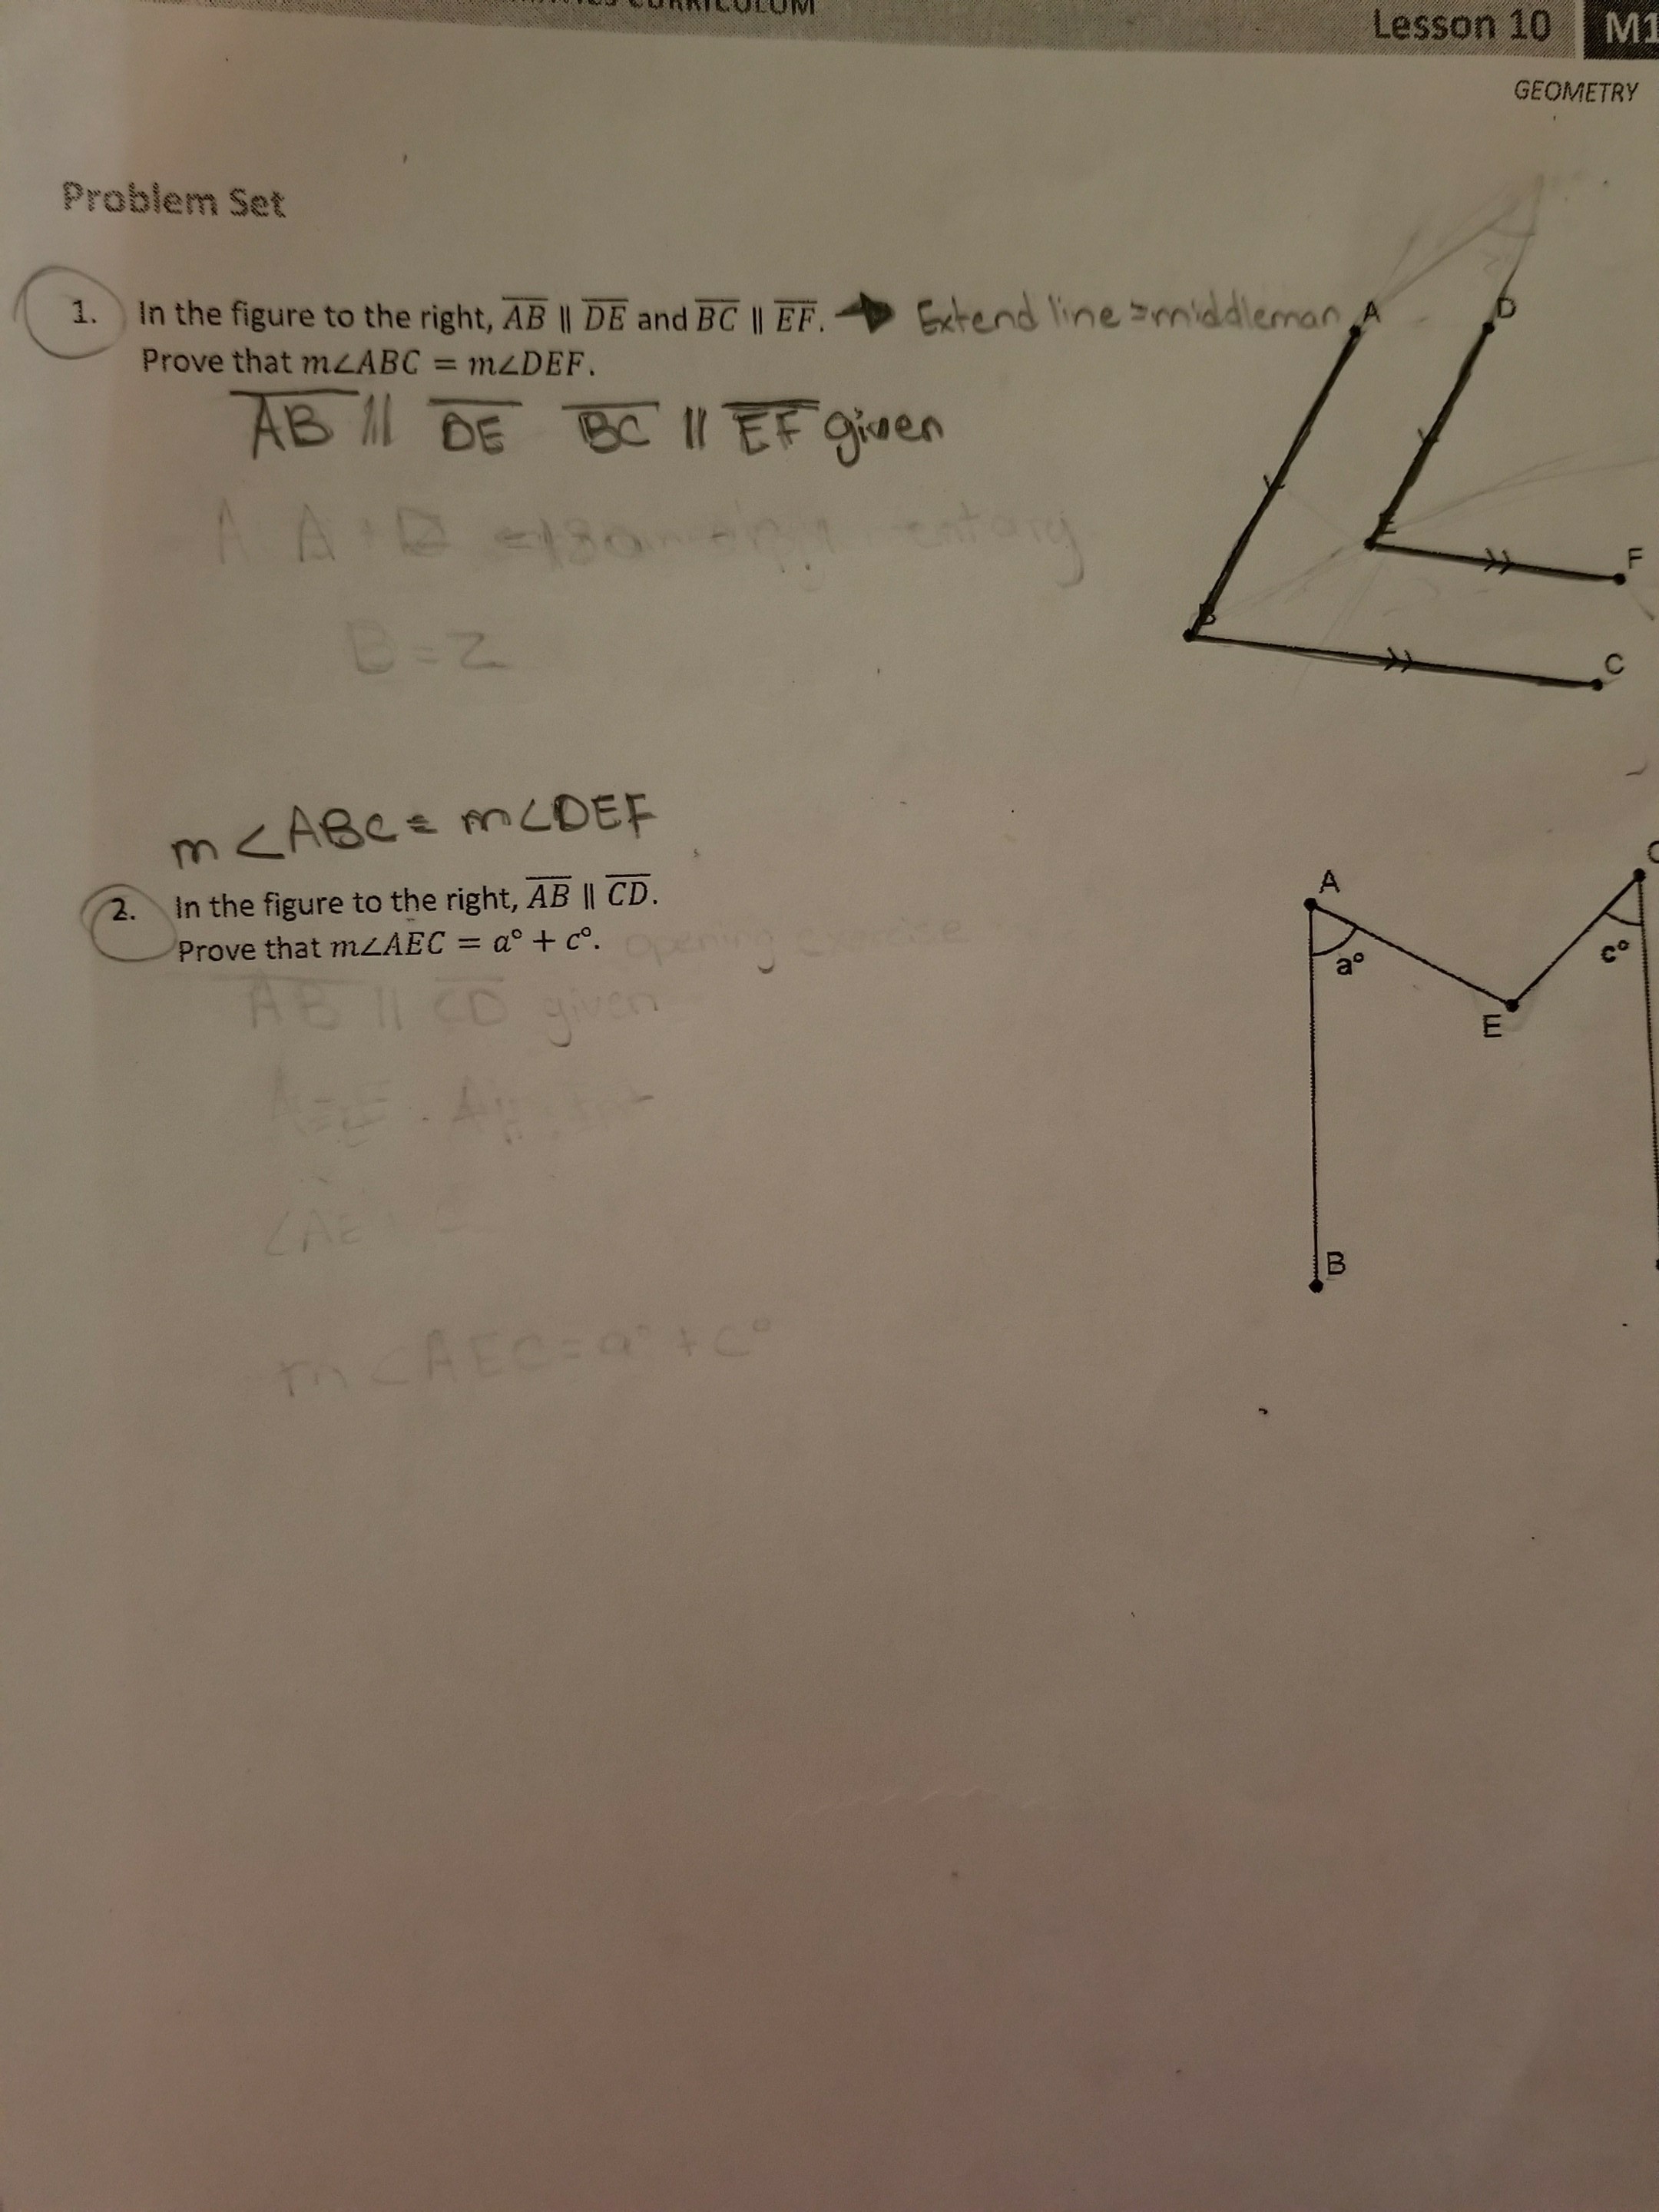 CURRICULUM
Lesson 10 M1
GEOMETRY
Problem Set
1. In the figure to the right, AB ∥ DE and BC ∥ EF. → Extend line = middleman
Prove that m∠ABC = m∠DEF.
AB ∥ DE BC ∥ EF given
B = Z
A
D
E
F
B
C
m∠ABC = m∠DEF
2. In the figure to the right, AB ∥ CD.
Prove that m∠AEC = a° + c°. opening exercise
AB ∥ CD given
m∠AEC = a° + c°
A
a°
E
c°
B